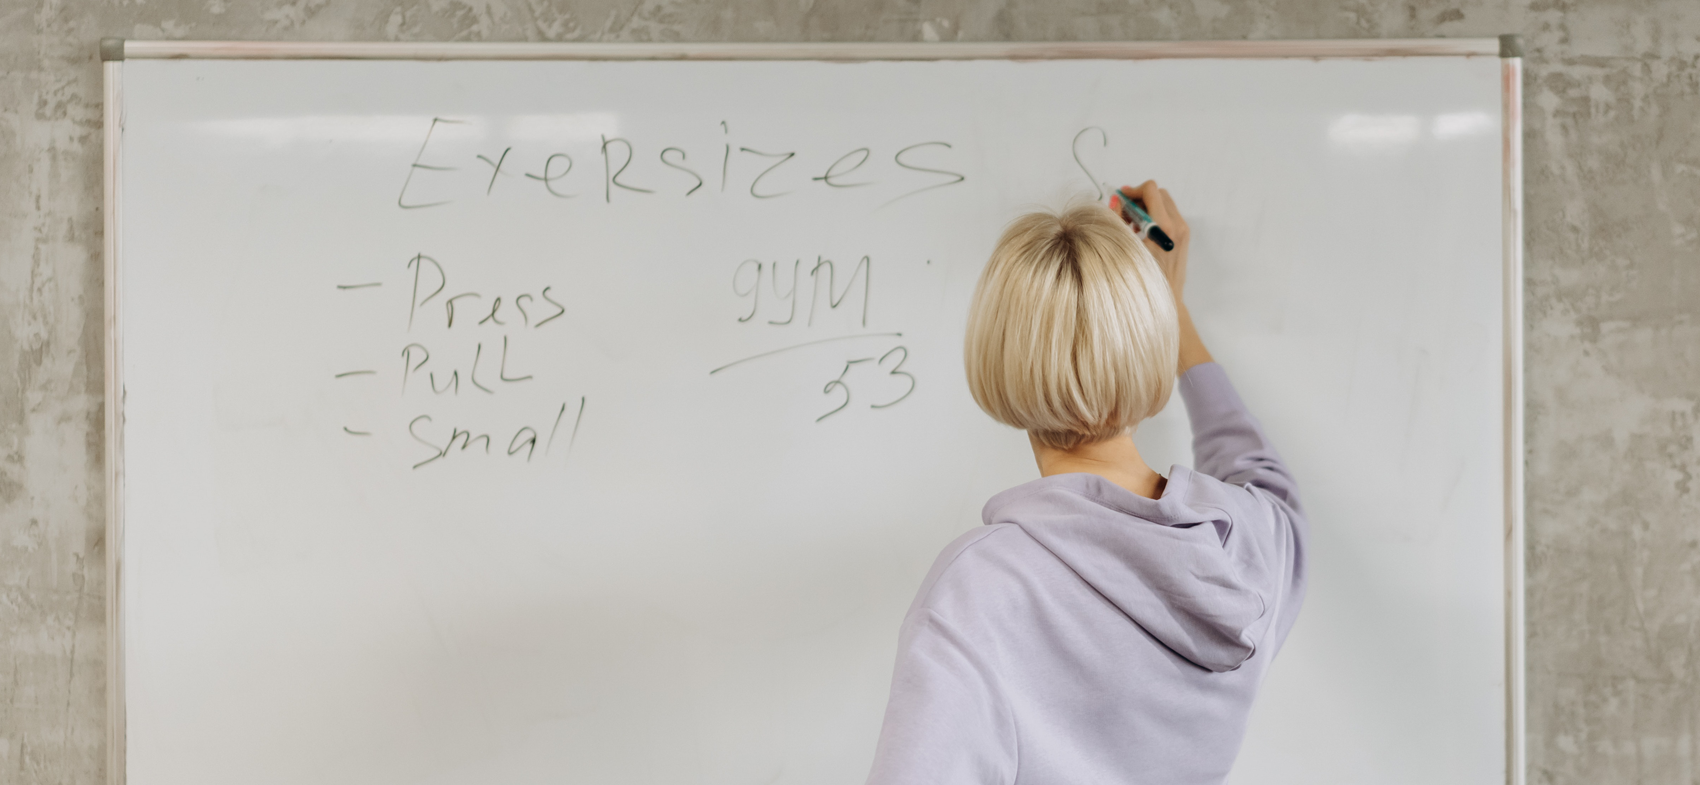 Exersizes S
- Press
- Pull
- Small
gym
53